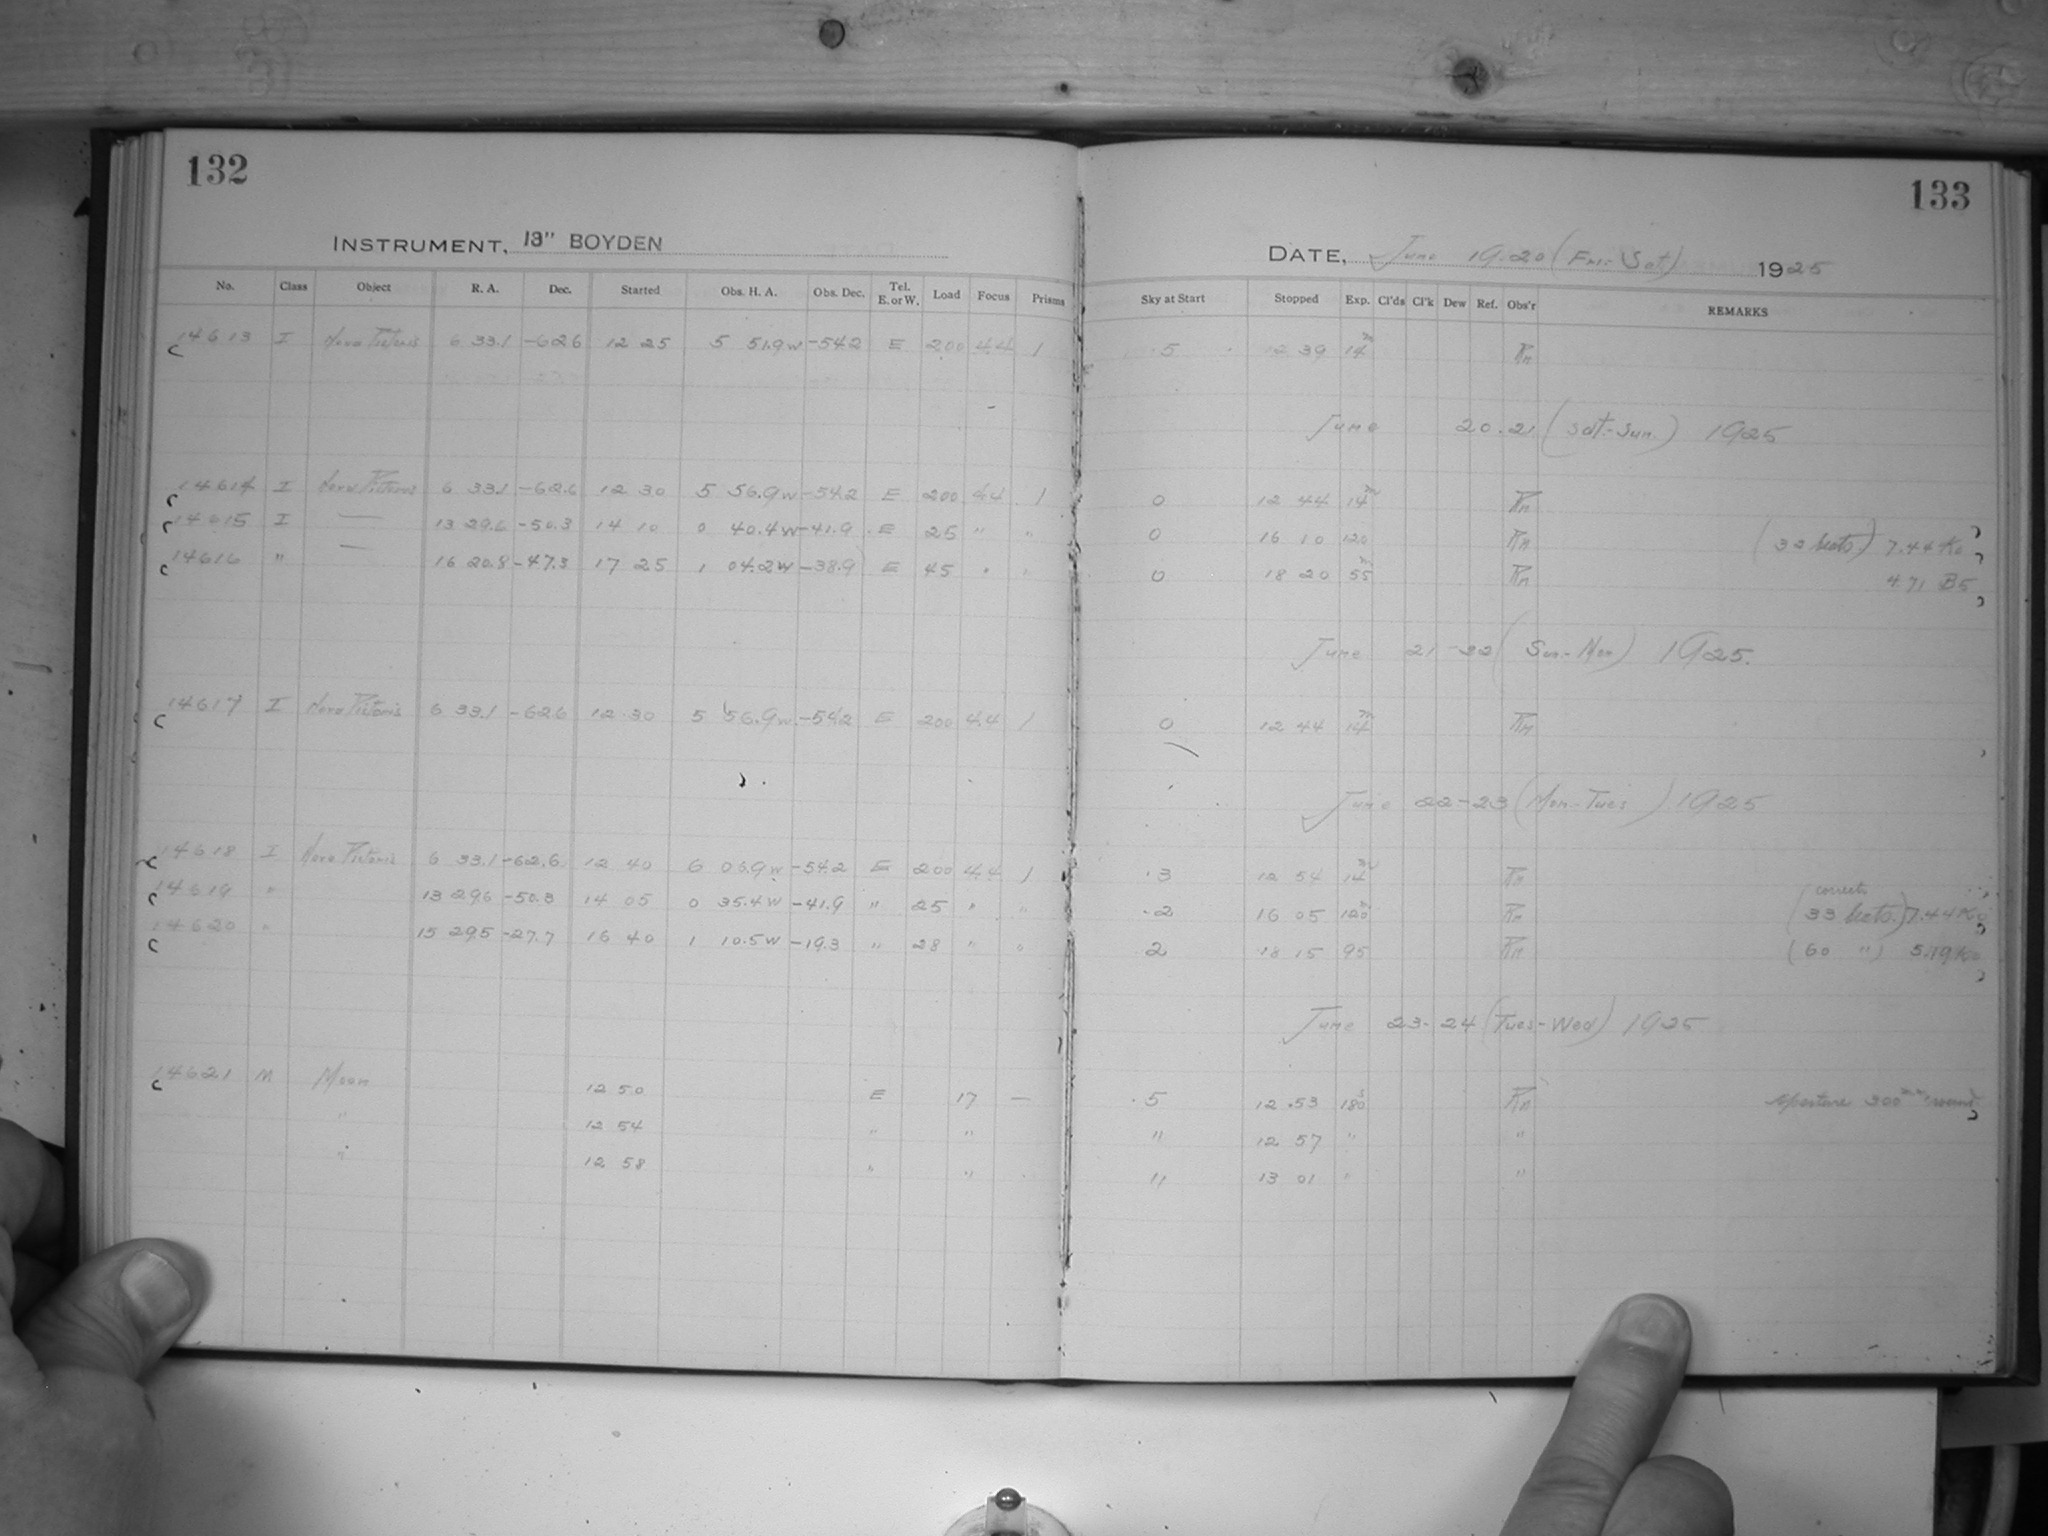 132
INSTRUMENT, 13" BOYDEN
No. Class Object R. A. Dec. Started Obs. H. A. Obs. Dec. Tel. E. or W. Load Focus Prisms
14613 I Nova Pictoris 6 33.1 -62.6 12 25 5 51.9w -54.2 E 200 4.4 1
14614 I Nova Pictoris 6 33.1 -62.6 12 30 5 56.9w -54.2 E 200 4.4 1
14615 I — 13 29.6 -50.3 14 10 0 40.4w -41.9 E 25 " "
14616 " — 16 20.8 -47.3 17 25 1 04.2w -38.9 E 45 " "
14617 I Nova Pictoris 6 33.1 -62.6 12 30 5 56.9w -54.2 E 200 4.4 1
14618 I Nova Pictoris 6 33.1 -62.6 12 40 6 06.9w -54.2 E 200 4.4 1
14619 " 13 29.6 -50.3 14 05 0 35.4w -41.9 " 25 " "
14620 " 15 29.5 -27.7 16 40 1 10.5w -19.3 " 28 " "
14621 M Moon 12 50 E 17 —
" 12 54 " "
" 12 58 " "
133
DATE, June 19-20 (Fri-Sat) 1925
Sky at Start Stopped Exp. Cl'ds Cl'k Dew Ref. Obs'r REMARKS
.5 12 39 14m
June 20-21 (Sat.-Sun.) 1925
0 12 44 14m
0 16 10 120 (32 beats) 7.44 K0
0 18 20 55m 4.71 B5
June 21-22 (Sun-Mon) 1925.
0 12 44 14m
June 22-23 (Mon-Tues) 1925
.3 12 54 14m
.2 16 05 120m (correct. 33 beats.) 7.44 K0
2 18 15 95 (60 ") 5.19 K0
June 23-24 (Tues-Wed) 1925
.5 12 53 180s Aperture 300mm round
" 12 57 " "
" 13 01 " "